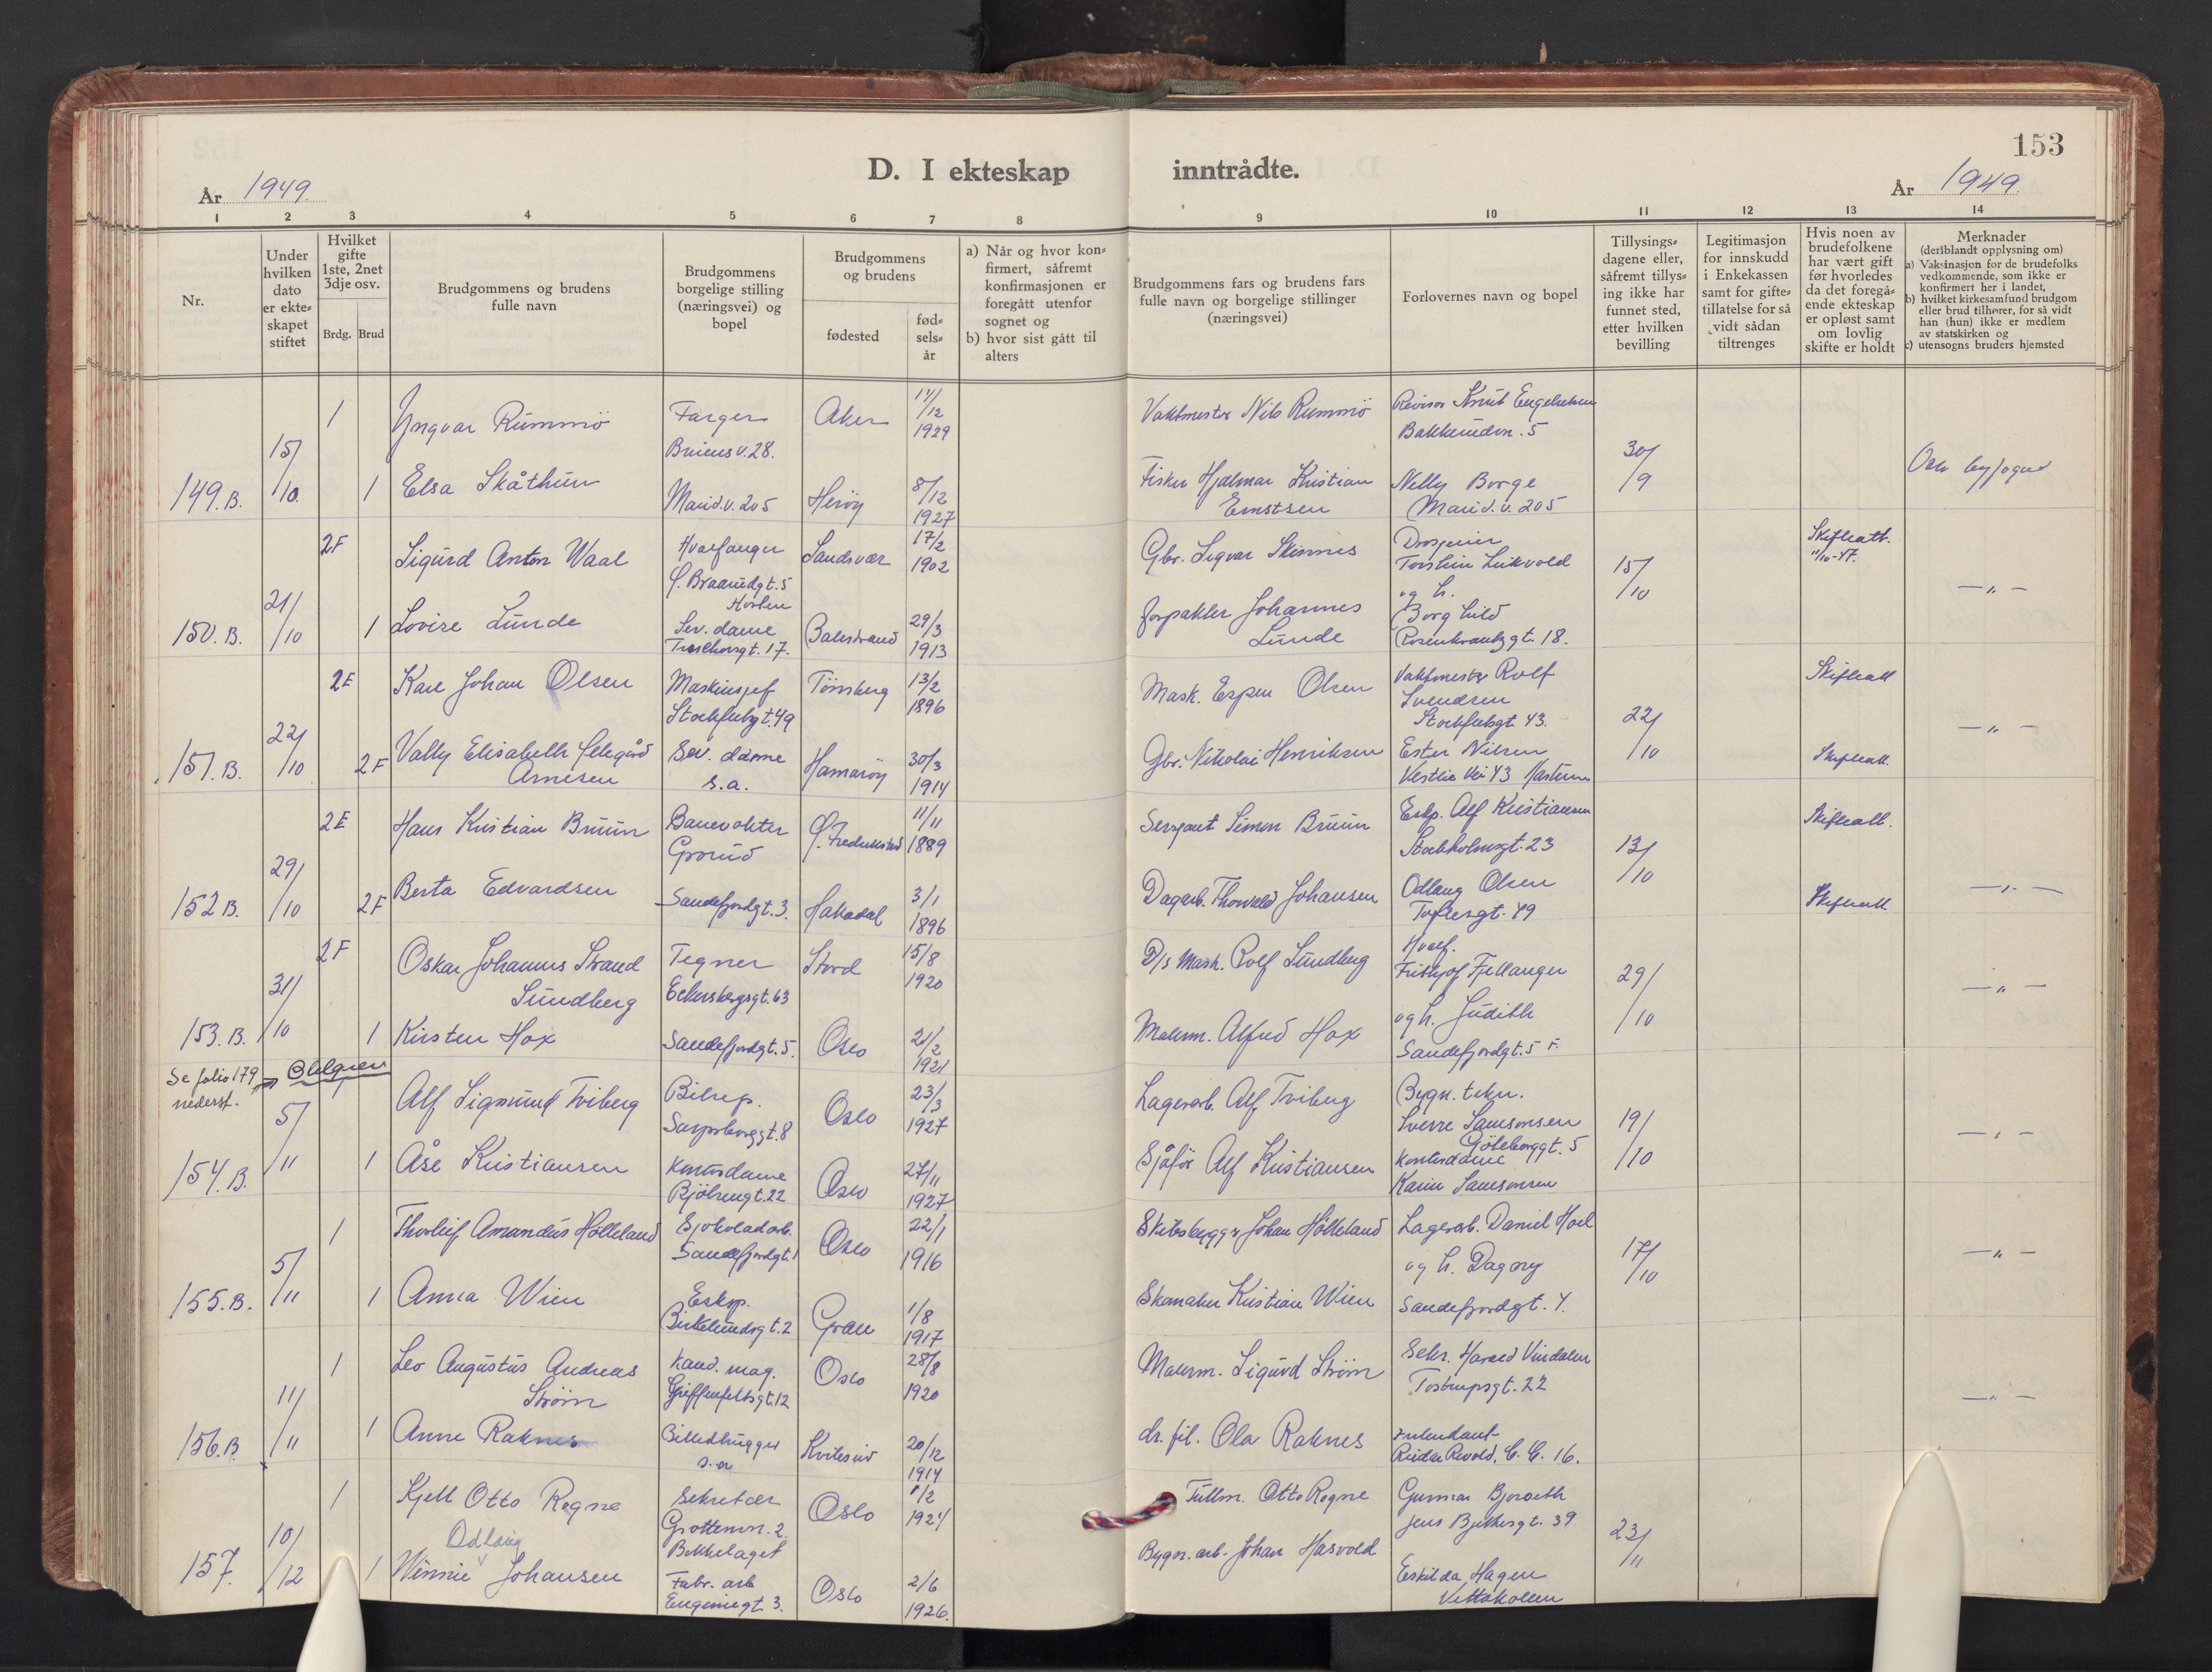 153
D. I ekteskap inntrådte.
År 1949. År 1949.
1 2 3 4 5 6 7 8 9 10 11 12 13 14
Nr.
Under hvilken dato er ekte- skapet stiftet
Hvilket gifte 1ste, 2net 3dje osv.
Brdg. Brud
Brudgommens og brudens fulle navn
Brudgommens borgelige stilling (næringsvei) og bopel
Brudgommens og brudens
fødested
fød- sels- år
a) Når og hvor kon- firmert, såfremt konfirmasjonen er foregått utenfor sognet og
b) hvor sist gått til alters
Brudgommens fars og brudens fars fulle navn og borgelige stillinger (næringsvei)
Forlovernes navn og bopel
Tillysings- dagene eller, såfremt tillys- ing ikke har funnet sted, etter hvilken bevilling
Legitimasjon for innskudd i Enkekassen samt for gifte- tillatelse for så vidt sådan tiltrenges
Hvis noen av brudefolkene har vært gift før hvorledes da det foregå- ende ekteskap er opløst samt om lovlig skifte er holdt
Merknader (deriblandt opplysning om)
a) Vaksinasjon for de brudefolks vedkommende, som ikke er konfirmert her i landet,
b) hvilket kirkesamfund brudgom eller brud tilhører, for så vidt han (hun) ikke er medlem av statskirken og
c) utensogns bruders hjemsted
1 Yngvar Rummø Farger Aker 14/12 1929 Vaktmester Nils Rummø Revisor Knut Engebretsen
Brieus v. 28. Bakkeudvn. 5
149.B. 15/10. 1 Elsa Skåthun Marid.v. 205 Herøy 8/12 1927 Fisker Hjalmar Kristian Ernstsen Nelly Borge 30/9 Oslo byfogd
Marid.v. 205
2F Sigurd Anton Waal Hvalfanger Sandsvær 17/2 1902 Gbr. Sigvar Skinnes Drosjeeier Skifteatt.
Braarudgt. 5 Torstein 11/10-47.
Horten
150.B. 21/10 1 Lovise Lunde Serv. dame Balestrand 29/3 1913 Forpakter Johannes Lunde og h. Borghild 15/10 — " —
gt. 17. Rosenkrantzgt. 18.
2E Kare Johan Olsen Maskinsjef Tønsberg 13/2 1896 Mask. Espen Olsen Vaktmester Rolf Svendsen Skifteatt
Stockfletsgt. 49 Stockfletsgt. 43.
151.B. 22/10 2F Vally Elisabeth Arnesen Serv. dame s.a. Hamarøy 30/3 1914 Gbr. Nikolai Henriksen Ester Nilsen 22/10 Skifteatt. — " —
Vestlie Vei 43
2E Hans Kristian Bruun Banevokter Ø. Fredrikstad 11/11 1889 Sersjant Simon Bruun Eksp. Alf Kristiansen Skifteatt.
Grorud Stockholmsgt. 23
152 B. 29/10 2F Berta Edvardsen Sandefjordgt. 3. Hakadal 3/1 1896 Dagarb. Thorvald Johansen Odlaug Olsen 13/10 Skifteatt — " —
Toftesgt. 49
2F Oskar Johannes Strand Sundberg Tegner Stord 15/8 1920 D/s Mask. Rolf Sundberg Hvalf. Frithjof Fjellanger
Eckersbergsgt. 63
153.B. 31/10 1 Kirsten Hox Sandefjordgt. 5. Oslo 21/2 1921 Malerm. Alfred Hox og h. Judith 29/10 — " —
Sandefjordgt. 5 F.
Se folio 179 nederst.
1 Alf Sigmund Tviberg Bilrep. Oslo 23/3 1927 Lagerarb. Alf Tviberg Bygn. tekn. Sverre Samsonsen
Sarpsborggt. 8 Göteborggt. 5
154.B. 5/11 1 Åse Kristiansen Kontordame Oslo 27/11 1927 Sjåfør Alf Kristiansen Kontordame Karin Samsonsen 19/10 — " —
Bjølsengt. 22
1 Thorleif Amandus Hölleland Sjokoladearb. Oslo 22/1 1916 Skibsbygger Johan Hölleland Lagerarb. Daniel Hoel
Sandefjordgt. 1
155.B. 5/11 1 Anna Wien Eksp. Gran 1/8 1917 Skomaker Kristian Wien og h. Dagny 17/10 — " —
Birkelundsgt. 2 Sandefjordgt. 4.
1 Leo Augustus Andreas Strøm Kand. mag. Oslo 28/8 1920 Malerm. Sigurd Strøm Sekr. Harald Vindalen
Griffenfeldtsgt. 12 Tostrupsgt. 22
156.B 11/11 1 Anne Raknes Billedhugger s.a Kviteseid 20/12 1914 dr. fil. Ola Raknes Intendant Reidar Revold, C. C. 16. — " —
1 Kjell Otto Rogne Sekretær Oslo 1/2 1924 Fullm. Otto Rogne Gunnar
Grottenvn. 2. Jens Bjelkesgt. 39
Bekkelaget
157. 10/12 1 Winnie Odlaug Johansen Fabr. arb Oslo 2/6 1926. Bygn. arb. Johan Hasvold Eskilda Hagen 23/11
Eugeniegt. 3. Vettakolen